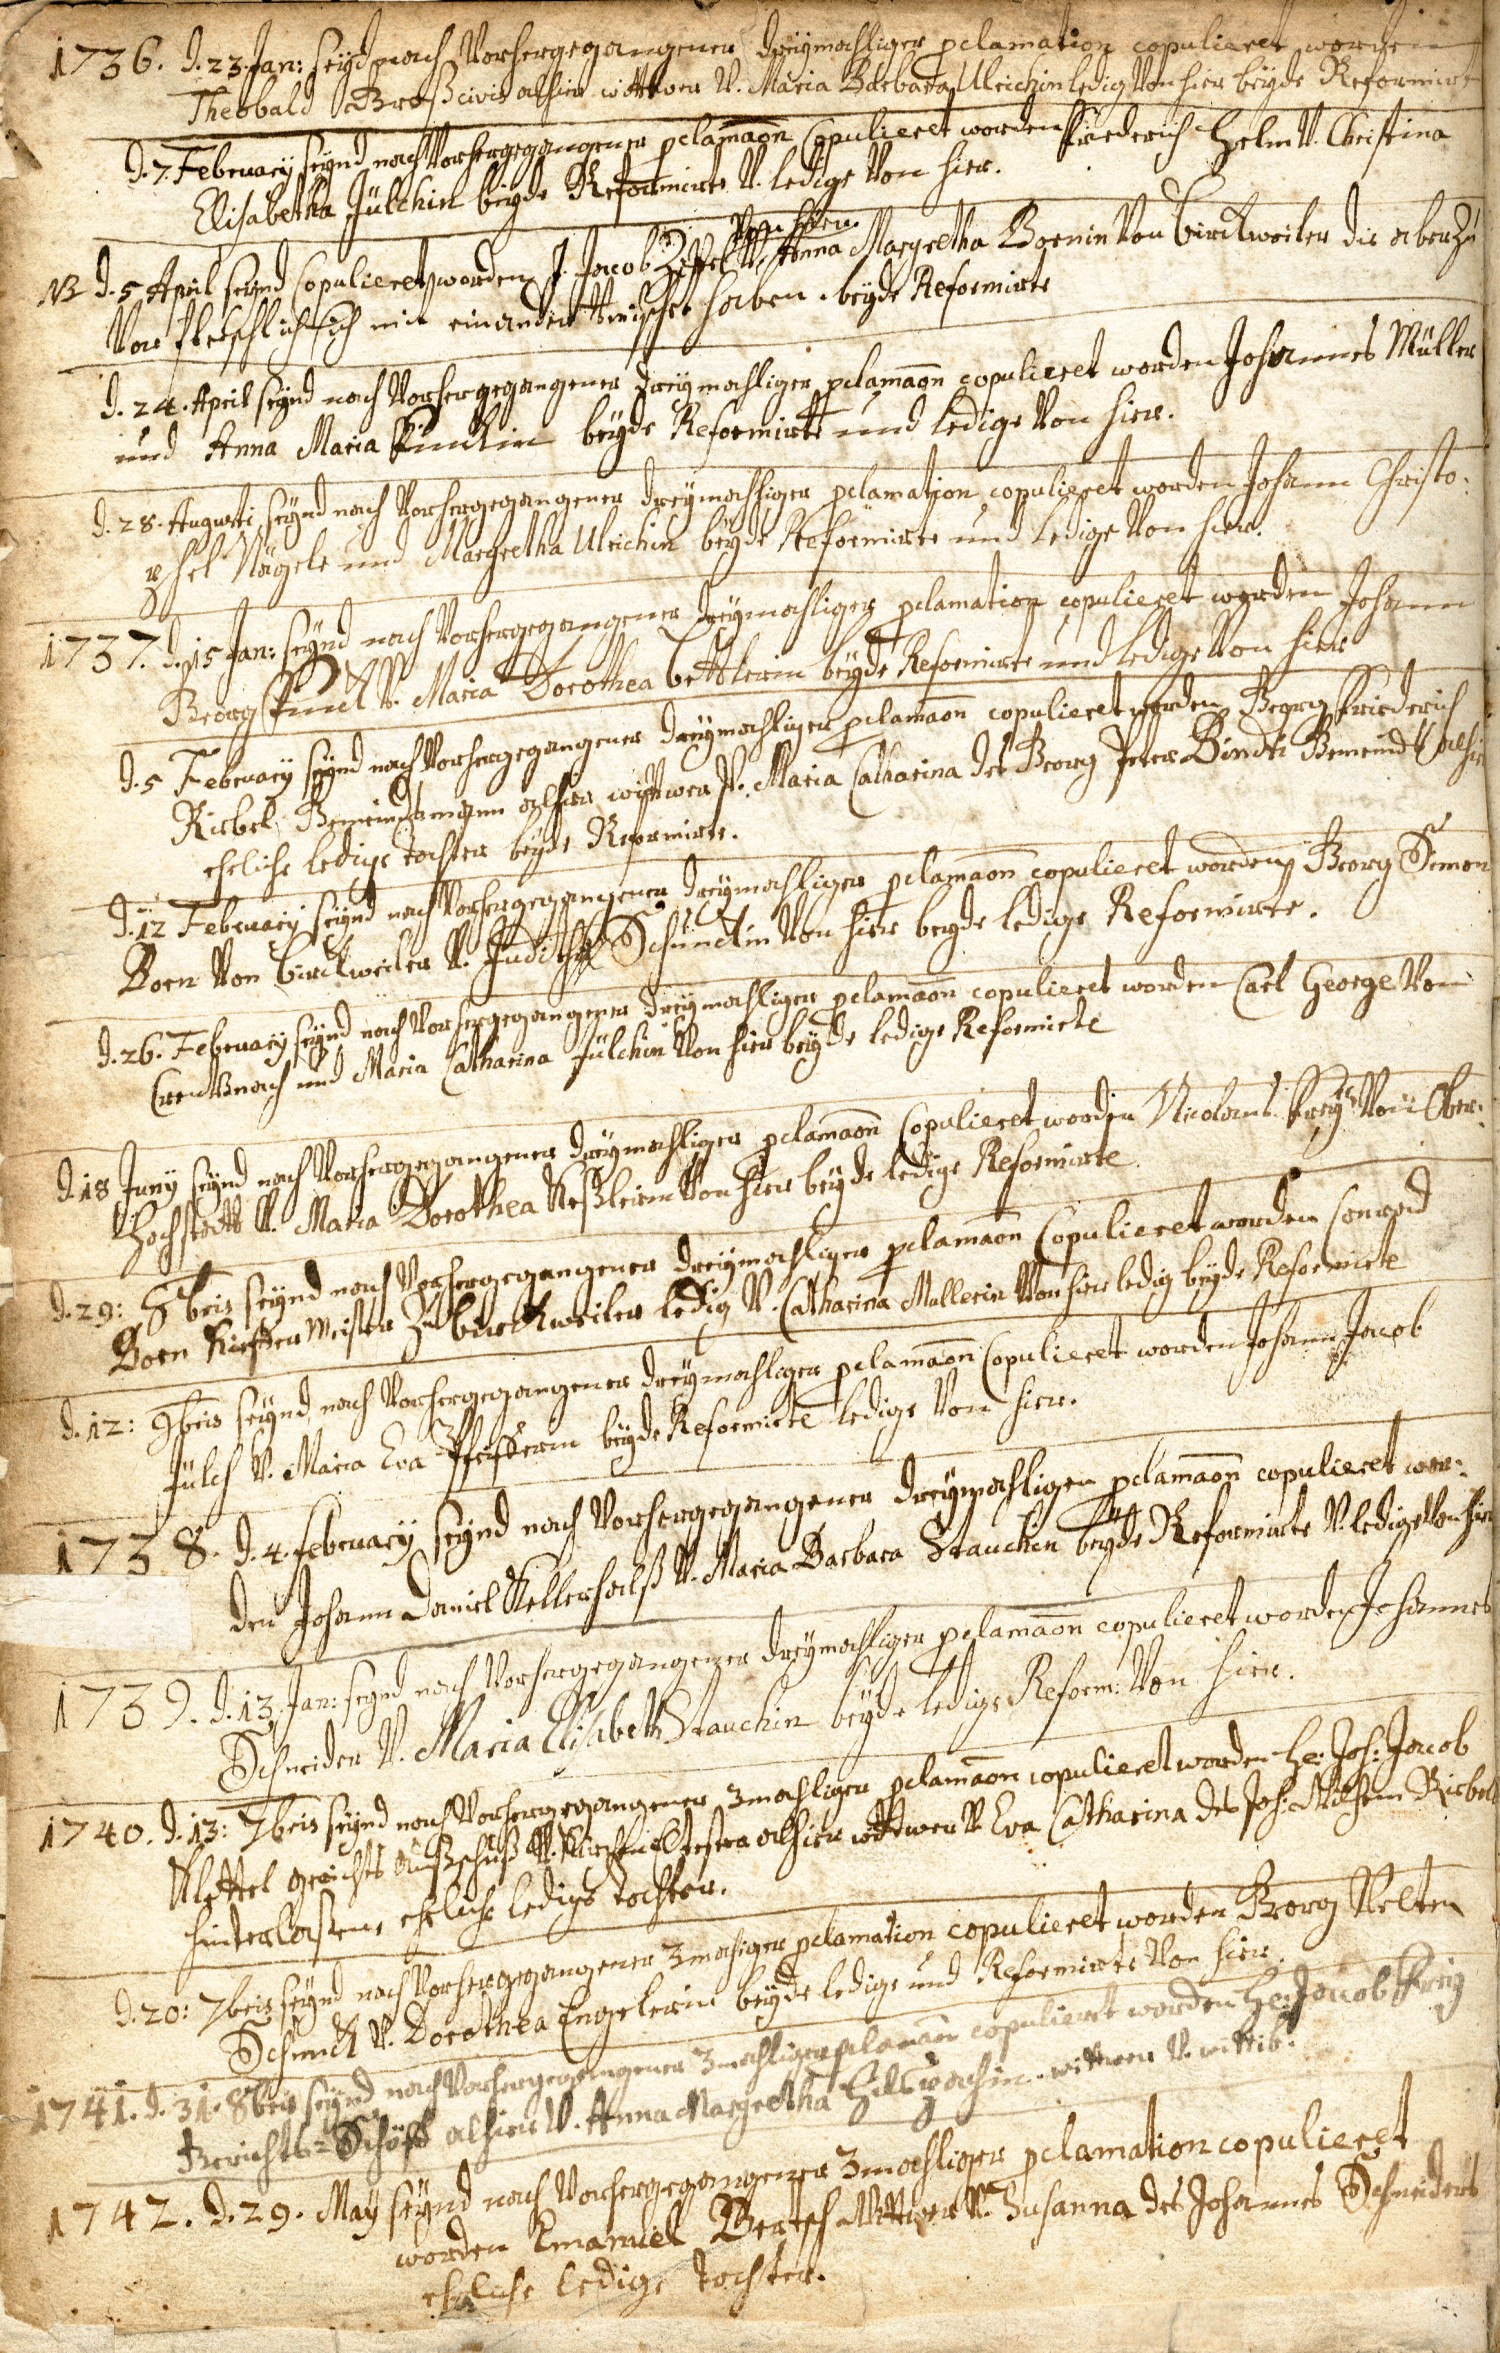 1736. d. 23. Jan: seynd nach Vorhergegangener dreymahliger pclamation copulieret worden
Theobald Groß civis alhier wittwer V. Maria Barbara Ulrichin ledig Von hier beyde Reformirt
d. 7. February seynd nach Vorhergegangener pclamaon Copulieret worden Friederich Helm V. Christina
Elisabetha Jülchin beyde Reformirte V. ledige Von hier.
Von hier.
NB d. 5 April seynd Copulieret worden J. Jacob V. Anna Margretha Bornin Von Birckweiler die aber Zu
Vor fleischlich sich mit einander Vermischet haben. beyde Reformirte
d. 24. April seynd nach Vorhergegangener dreymahliger pclamaon copulieret worden Johannes Müller
und Anna Maria beyde Reformirte und ledige Von hier.
d. 28. Augusti seynd nach Vorhergegangener dreymahliger pclamation copulieret worden Johann Christo:
phel Nägele und Margretha Ulrichin beyde Reformirte und ledige Von hier.
1737. d. 15 Jan: seynd nach Vorhergegangener dreymahliger pclamation copulieret worden Johann
Georg V. Maria Dorothea Bettlerin beyde Reformirte und ledige Von hier
d. 5 February seynd nach Vorhergegangener dreymahliger pclamaon copulieret worden Georg Friederich
Riebel, Gemeindsmann alhier wittwer V. Maria Catharina des Georg Peter Gemeinds alhier
eheliche ledige tochter beyde Reformirte.
d. 12 February seynd nach Vorhergegangener dreymahliger pclamaon copulieret worden Georg Simon
Born Von Birckweiler V. Judith Schunckin Von hier beyde ledige Reformirte.
d. 26. February seynd nach Vorhergegangener dreymahliger pclamaon copulieret worden Carl George Von
Creutznach und Maria Catharina Jülchin Von hier beyde ledige Reformirte
d. 18 Juny seynd nach Vorhergegangener dreymahliger pclamaon Copulieret worden Nicolaus Frey Von Ober:
Hochstatt V. Maria Dorothea Keßlerin Von hier beyde ledige Reformirte
d. 29: 8bris seynd nach Vorhergegangener dreymahliger pclamaon Copulieret worden Conrad
Born Kieffer Meister Zu Birckweiler ledig V. Catharina Mullerin Von hier ledig beyde Reformirte
d. 12: 9bris seynd nach Vorhergegangener dreymahliger pclamaon Copulieret worden Johann Jacob
Jülch V. Maria Eva Pfeifferin beyde Reformirte ledige Von hier.
1738. d. 4. february seynd nach Vorhergegangener dreymahligen pclamaon copulieret wor:
den Johann Daniel Kellerhalß V. Maria Barbara Strauchin beyde Reformirte V. ledige Von hier
1739. d. 13. Jan: seynd nach Vorhergegangener dreymahliger pclamaon copulieret worden Johannes
Schneider V. Maria Elisabeth Strauchin beyde ledige Reform: Von hier.
1740. d. 13: 7bris seynd nach Vorhergegangener 3mahliger pclamaon copulieret worden He: Joh: Jacob
Klettel gerichts Außschuß V. Kirchen Eltester alhier wittwer V. Eva Catharina des Joh: Wilhelm Riebels
hinterlaßene eheliche ledige tochter.
d. 20: 7bris seynd nach Vorhergegangener 3mahliger pclamation copulieret worden Georg Velten
Schunck V. Dorothea Engelerin beyde ledige und Reformirte Von hier.
1741. d. 31. 8bris seynd nach Vorhergegangener 3mahliger pclamaon copulieret worden He: Jacob Frey
Gerichts=Schöff alhier V. Anna Margretha wittwer V. wittib.
1742. d. 29. May seynd nach Vorhergegangener 3mahliger pclamation copulieret
worden Emanuel Bertsch Wittwer V. Susanna des Johannes Schneiders
eheliche ledige tochter.